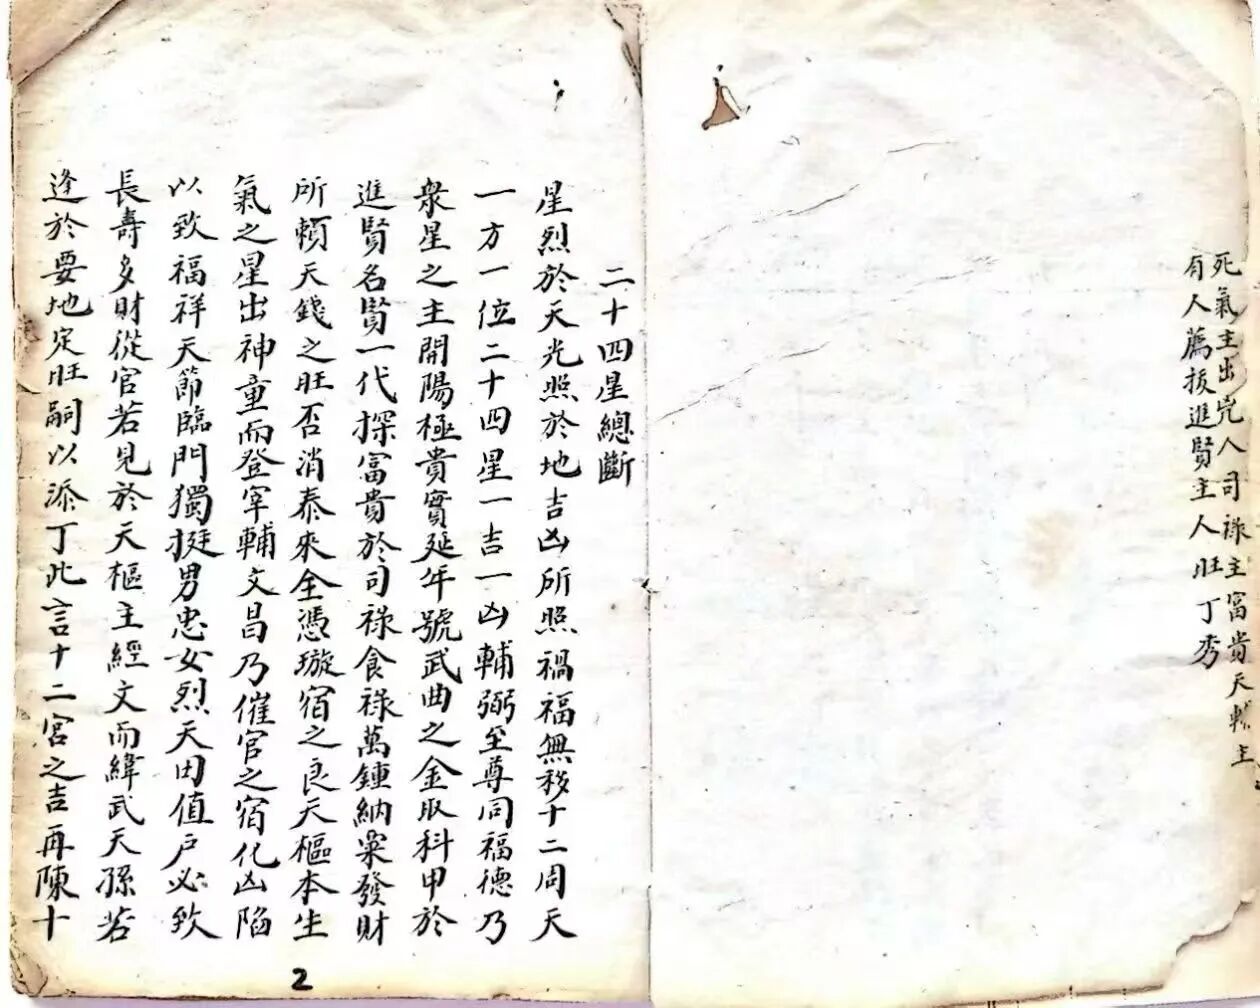 死氣主出兇人司祿主富貴天轸主
有人薦拔進賢主人旺丁秀
二十四星總斷
星烈於天光照於地吉凶所照禍福無移十二周天
一方一位二十四星一吉一凶輔弼至尊同福德乃
衆星之主開陽極貴實延年號武曲之金取科甲於
進賢名賢一代探富貴於司祿食祿萬鍾納粟發財
所賴天錢之旺否消泰來全憑璇宿之良天樞本生
氣之星出神童而登宰輔文昌乃催官之宿化凶陷
以致福祥天節臨門獨挺男忠女烈天田值戶必致
長壽多財從官若見於天樞主經文而緯武天孫若
逢於要地定旺嗣以添丁此言十二宮之吉再陳十
2